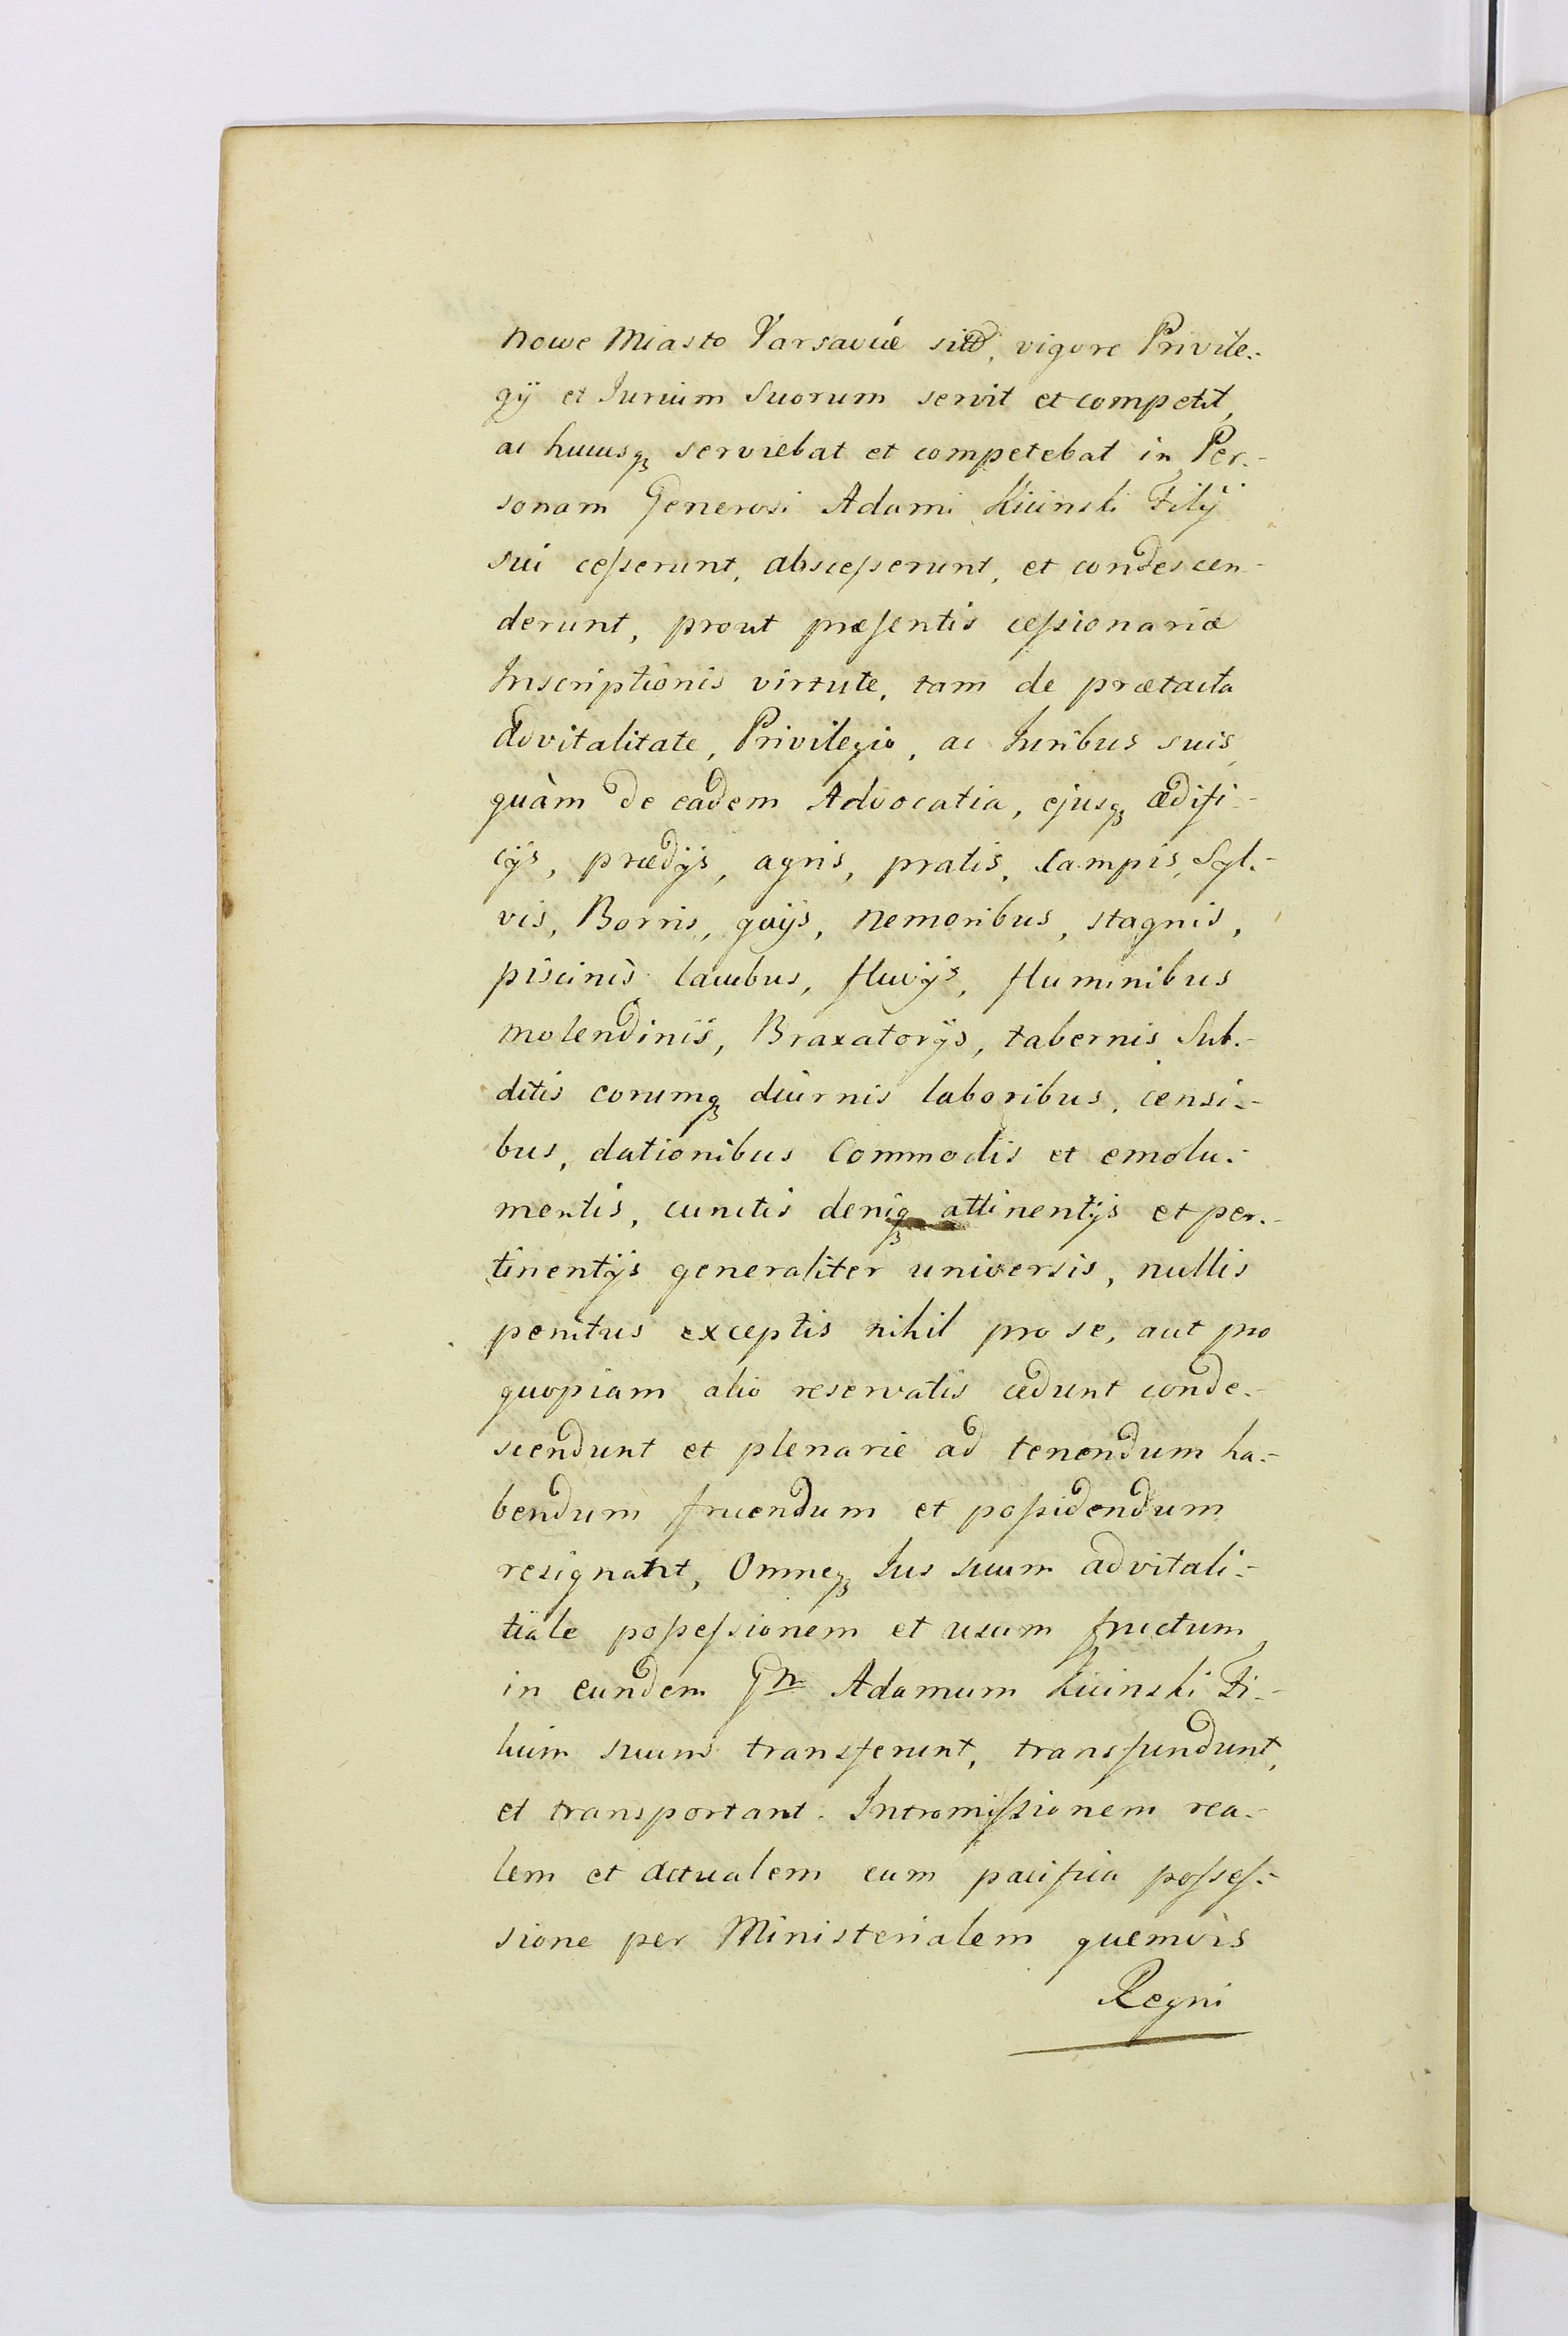 Nowe Miasto Varsaviæ sitæ, vigore Privile-
gÿ et Jurium Suorum servit et competit,
ac hucusqꝫ serviebat et competebat in Per-
sonam Generosi Adami Kicinski Filÿ
sui ceſserunt, absceſserunt, et condescen-
derunt, prout præſentis ceſsionariæ
Inscriptionis virtute, tam de prætacta
advitalitate, Privilegio, ac Juribus suis,
quàm de eadem Advocatia, ejusqꝫ ædifi-
cÿs, prædÿs, agris, pratis, campis, Syl-
vis, Borris, gaÿs, nemoribus, stagnis,
piscinis lacubus, fluvÿs, fluminibus
molendinis, Braxatorÿs, tabernis Sub-
ditis eorumqꝫ diurnis laboribus, censi-
bus, dationibus Commodis et emolu-
mentis, cunctis deniqꝫ attinentÿs et per-
tinentÿs generaliter universis, nullis
penitus exceptis nihil pro se, aut pro
quopiam alio reservatis cedunt conde-
scendunt et plenarie ad tenendum ha-
bendum fruendum et poſsidendum
resignant, Omneqꝫ Jus suum advitali-
tiale poſseſsionem et usum fructum,
in eundem Gn Adamum Kicinski Fi-
lium suum transferunt, transfundunt,
et transportant. Intromiſsionem rea-
lem et actualem cum pacifica poſseſ-
sione per Ministerialem quemvis
Regni